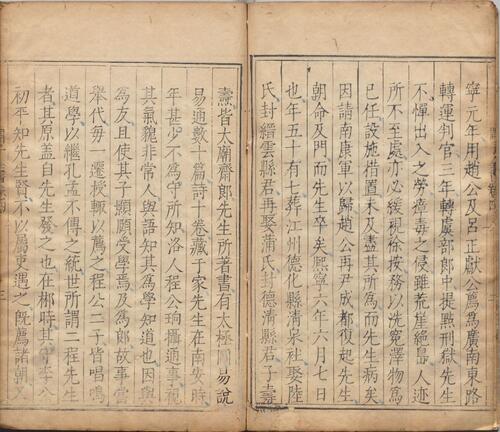 寧元年用趙公及呂正獻公薦爲廣南東路
轉運判官三年轉虞部郎中提點刑獄先生
不憚出入之勞瘴毒之侵雖荒崖絶島人迹
所不至處亦必緩視徐按務以洗冤澤物爲
已任設施措置未及盡其所爲而先生病矣
因請南康軍以歸趙公再尹成都復起先生
朝命及門而先生卒矣熙寧六年六月七日
也年五十有七葬江州德化縣清泉社娶陸
氏封縉雲縣君再娶蒲氏封德清縣君子壽
燾皆太廟齋郎先生所著書有太極圖易說
易通數十篇詩十卷藏于家先生在南安時
年甚少不爲守所知洛人程公珦攝通事視
其氣貌非常人與語知其爲學知道也因與
爲友且使其子顥頤受學焉及爲郎故事當
舉代每一遷授輒以薦之程公二子皆唱鳴
道學以繼孔孟不傳之統世所謂二程先生
者其原蓋自先生發之也在郴時其守李公
初平知先生賢不以屬吏遇之既薦諸朝又